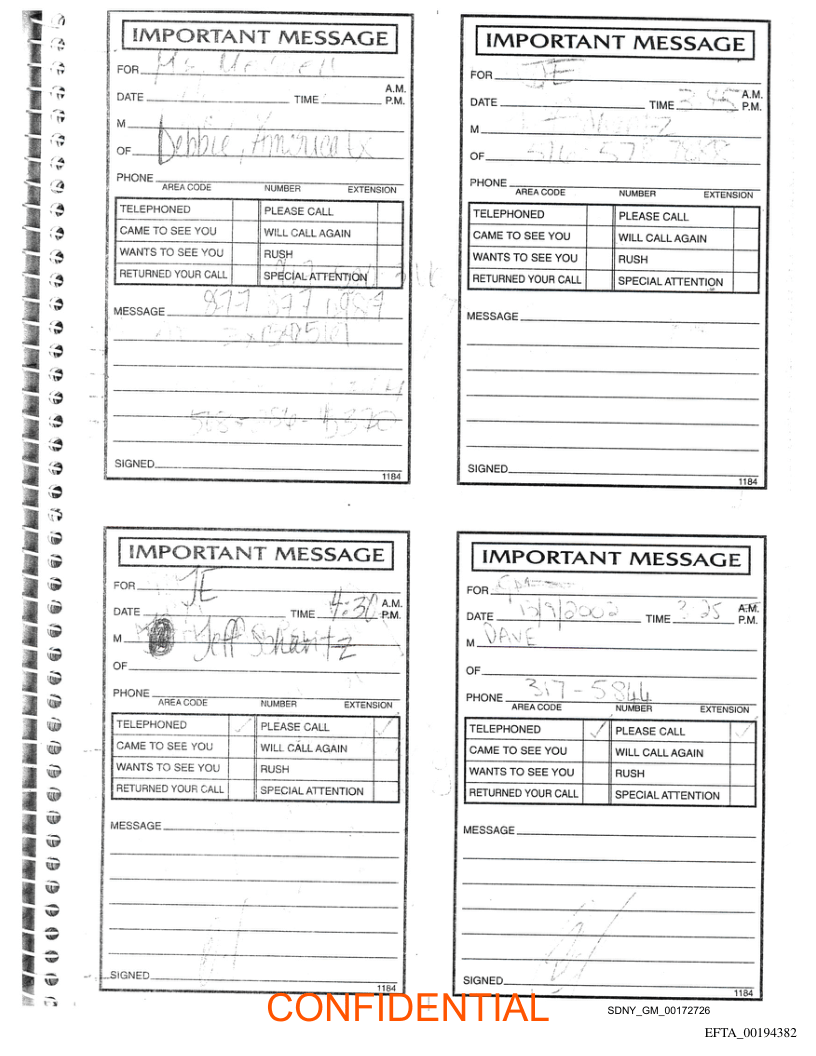 IMPORTANT MESSAGE
FOR
DATE TIME A.M. P.M.
M
OF Debbie, America
PHONE
AREA CODE NUMBER EXTENSION
TELEPHONED PLEASE CALL
CAME TO SEE YOU WILL CALL AGAIN
WANTS TO SEE YOU RUSH
RETURNED YOUR CALL SPECIAL ATTENTION
MESSAGE 877 377 1987
SIGNED
1184
IMPORTANT MESSAGE
FOR JE
DATE TIME 3:45 A.M. P.M.
M
OF
PHONE
AREA CODE NUMBER EXTENSION
TELEPHONED PLEASE CALL
CAME TO SEE YOU WILL CALL AGAIN
WANTS TO SEE YOU RUSH
RETURNED YOUR CALL SPECIAL ATTENTION
MESSAGE
SIGNED
1184
IMPORTANT MESSAGE
FOR JE
DATE TIME 4:30 A.M. P.M.
M Jeff Schantz
OF
PHONE
AREA CODE NUMBER EXTENSION
TELEPHONED ✓ PLEASE CALL ✓
CAME TO SEE YOU WILL CALL AGAIN
WANTS TO SEE YOU RUSH
RETURNED YOUR CALL SPECIAL ATTENTION
MESSAGE
SIGNED
1184
IMPORTANT MESSAGE
FOR
DATE 12/9/2002 TIME 3:25 A.M. P.M.
M DAVE
OF
PHONE 317-5844
AREA CODE NUMBER EXTENSION
TELEPHONED ✓ PLEASE CALL ✓
CAME TO SEE YOU WILL CALL AGAIN
WANTS TO SEE YOU RUSH
RETURNED YOUR CALL SPECIAL ATTENTION
MESSAGE
SIGNED
1184
CONFIDENTIAL
SDNY_GM_00172726
EFTA_00194382